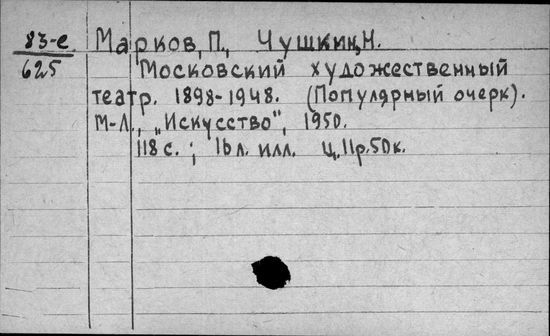 83-е
625
Марков, П., Чушкин, Н.
Московский художественный
театр. 1898-1948. (Популярный очерк).
М-Л., "Искусство", 1950.
118 с. ; 16 л. илл. Ц. 11 р. 50 к.